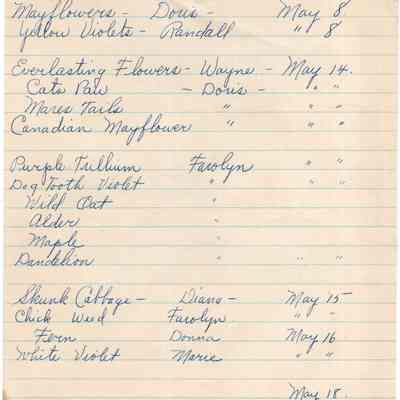 Mayflowers - Doris - May 8
Yellow Violets - Randall " 8
Everlasting Flowers - Wayne - May 14.
Cats Paw - Doris - " "
Mares Tails " " "
Canadian Mayflower " " "
Purple Trillium Farolyn " "
Dog Tooth Violet " " "
Wild Oat "
Alder "
Maple "
Dandelion " " "
Skunk Cabbage - Diane - May 15
Chick Weed Farolyn " "
Fern Donna May 16
White Violet Marie " "
May 18.